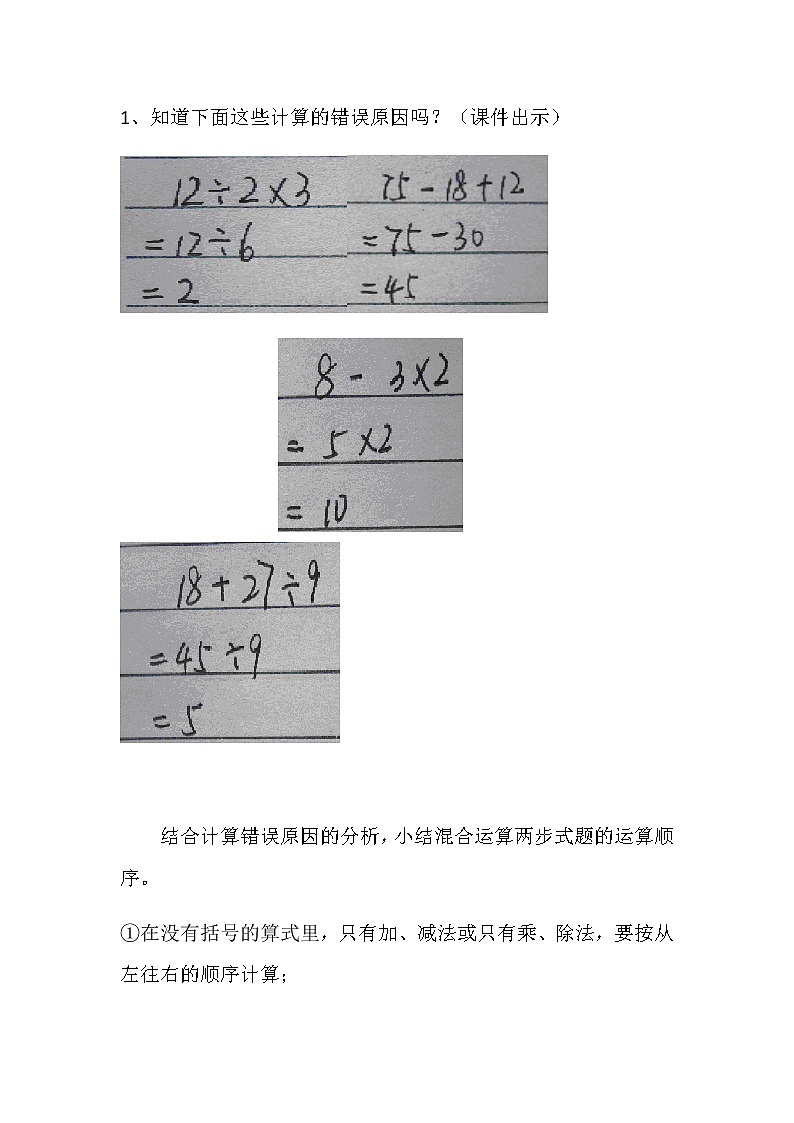 1、知道下面这些计算的错误原因吗？（课件出示）
12÷2×3
=12÷6
=2
75-18+12
=75-30
=45
8-3×2
=5×2
=10
18+27÷9
=45÷9
=5
结合计算错误原因的分析，小结混合运算两步式题的运算顺
序。
①在没有括号的算式里，只有加、减法或只有乘、除法，要按从
左往右的顺序计算；